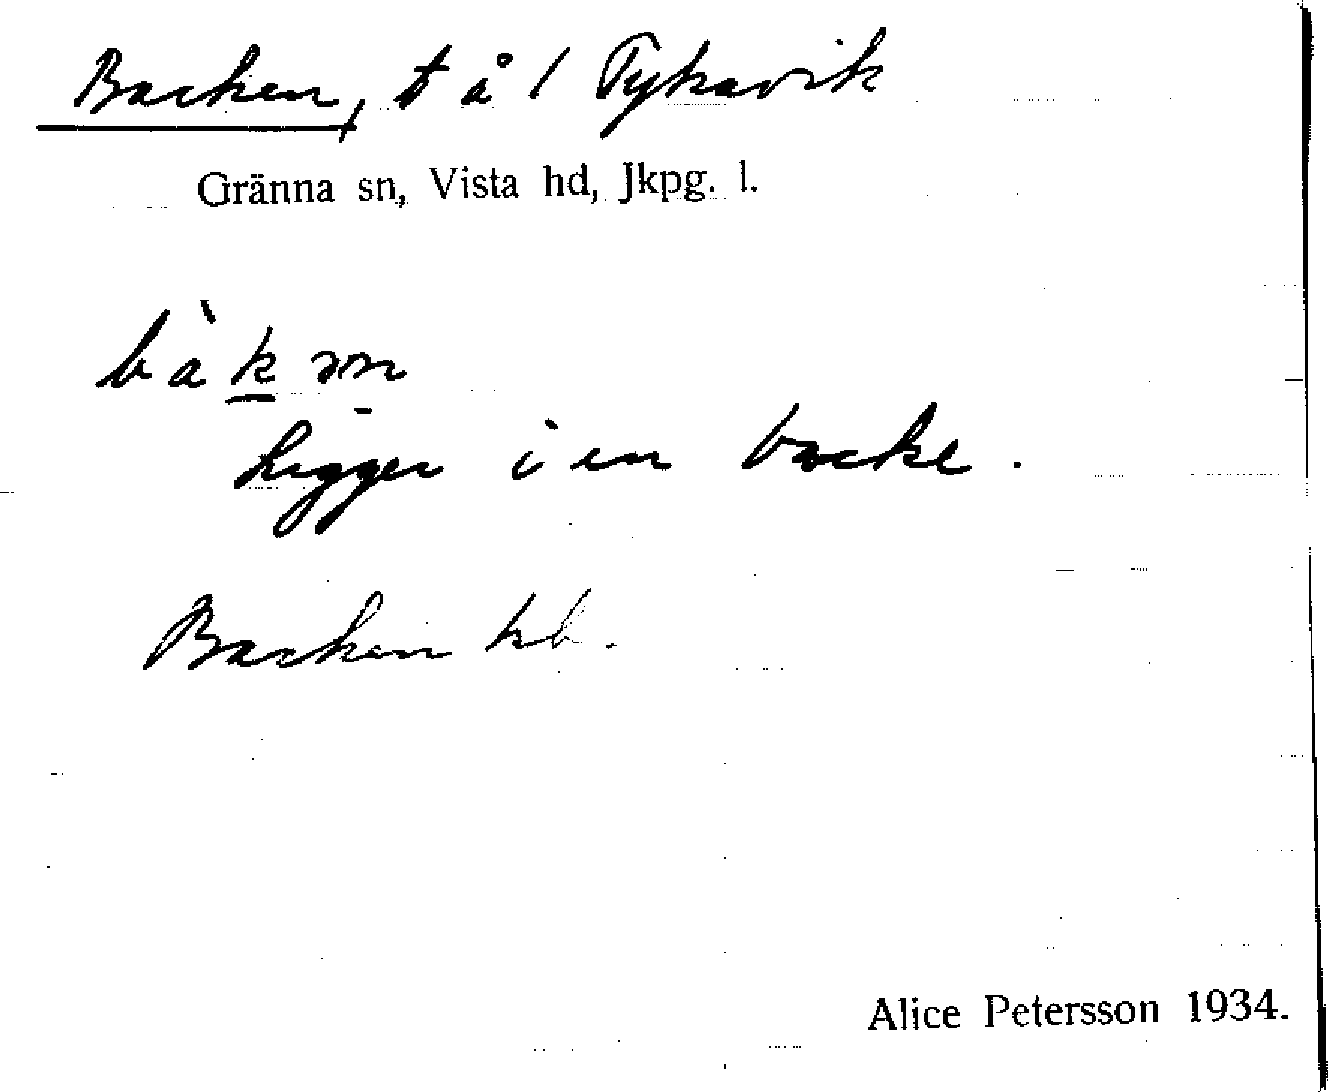 Backen, t å 1 Tykavik
Gränna sn, Vista hd, Jkpg. l.
bàk ən
Ligger i en backe.
Backen hb.
Alice Petersson 1934.